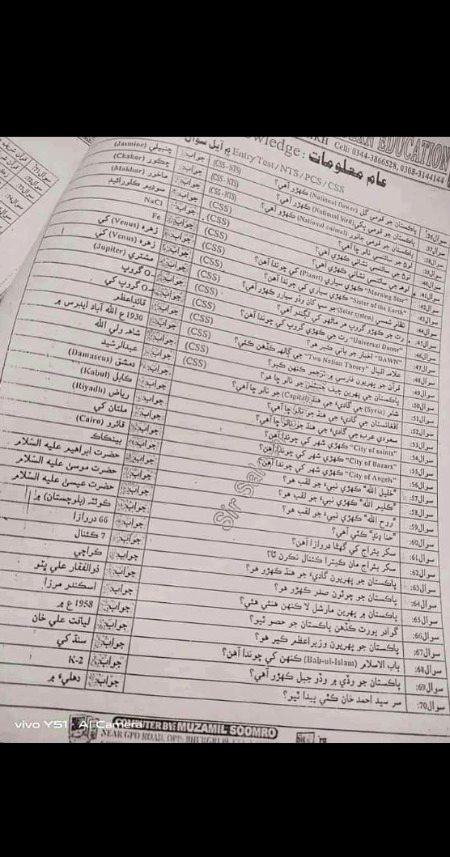 EDUCATION
Cell: 0344-3866528, 0303-3144144
عام معلومات : Knowledge
Entry Test / NTS / PCS / CSS
سوال36: پاڪستان جو قومي گل (National flower) ڪهڙو آهي؟ (CSS-NTS) جواب: چنبيلي (Jasmine)
سوال37: پاڪستان جو قومي پکي (National bird) ڪهڙو آهي؟ (CSS-NTS) جواب: چڪور (Chakor)
سوال38: پاڪستان جو قومي جانور (National animal) ڪهڙو آهي؟ (CSS-NTS) جواب: مارخور (Makhor)
سوال39: لوڻ جو سائنسي نالو ڇا آهي؟ جواب: سوڊيم ڪلورائيڊ
سوال40: لوڻ جي سائنسي نشاني ڪهڙي آهي؟ (CSS) جواب: NaCl
سوال41: لوهه جي سائنسي نشاني ڪهڙي آهي؟ (CSS) جواب: Fe
سوال42: "Morning Star" ڪهڙي سياري (Planet) کي چوندا آهن؟ (CSS) جواب: زهره (Venus) کي
سوال43: "Sister of the Earth" ڪهڙي سياري کي چوندا آهن؟ (CSS) جواب: زهره (Venus) کي
سوال44: نظام شمسي (Solar system) جو سڀ کان وڏو سيارو ڪهڙو آهي؟ (CSS) جواب: مشتري (Jupiter)
سوال45: رت جو ڪهڙو گروپ هر ماڻهو کي لڳندو آهي؟ جواب: O گروپ
سوال46: "Universal Donor" رت جي ڪهڙي گروپ کي چوندا آهن؟ (CSS) جواب: O گروپ کي
سوال47: "DAWN" اخبار جو باني ڪير هو؟ (CSS) جواب: قائداعظم
سوال48: علامه اقبال "Two Nation Theory" جي ڳالهه ڪڏهن ڪئي؟ جواب: 1930ع الله آباد ايڊريس ۾
سوال49: قرآن جو پهريون فارسي ۾ ترجمو ڪنهن ڪيو؟ جواب: شاهه ولي الله
سوال50: پاڪستان جي پهرين چيف جسٽس جو نالو ڇا هو؟ جواب: عبدالرشيد
سوال51: شام (Syria) جي گاديءَ جي هنڌ (Capital) جو نالو ڇا آهي؟ (CSS) جواب: دمشق (Damascus)
سوال52: افغانستان جي گاديءَ جي هنڌ جو نالو ڇا آهي؟ جواب: ڪابل (Kabul)
سوال53: سعودي عرب جي گاديءَ جي هنڌ جو نالو ڇا آهي؟ جواب: رياض (Riyadh)
سوال54: "City of saints" ڪهڙي شهر کي چوندا آهن؟ جواب: ملتان کي
سوال55: "City of Bazars" ڪهڙي شهر کي چوندا آهن؟ جواب: قائرو (Cairo)
سوال56: "City of Angels" ڪهڙي شهر کي چوندا آهن؟ جواب: بينڪاڪ
سوال57: "خليل الله" ڪهڙي نبيءَ جو لقب هو؟ جواب: حضرت ابراهيم عليه السلام
سوال58: "ڪليم الله" ڪهڙي نبيءَ جو لقب هو؟ جواب: حضرت موسيٰ عليه السلام
سوال59: "روح الله" ڪهڙي نبيءَ جو لقب هو؟ جواب: حضرت عيسيٰ عليه السلام
سوال60: "حنا ڍنڍ" ڪٿي آهي؟ جواب: ڪوئٽه (بلوچستان) ۾
سوال61: سکر بئراج کي گهڻا دروازا آهن؟ جواب: 66 دروازا
سوال62: سکر بئراج مان ڪيترا ڪئنال نڪرن ٿا؟ جواب: 7 ڪئنال
سوال63: پاڪستان جو پهريون گاديءَ جو هنڌ ڪهڙو هو؟ جواب: ڪراچي
سوال64: پاڪستان جو چوٿون صدر ڪهڙو هو؟ جواب: ذوالفقار علي ڀٽو
سوال65: پاڪستان ۾ پهريون مارشل لا ڪنهن هنئي هئي؟ جواب: اسڪندر مرزا
سوال66: گوادر پورٽ ڪڏهن پاڪستان جو حصو ٿيو؟ جواب: 1958ع ۾
سوال67: پاڪستان جو پهريون وزيراعظم ڪير هو؟ جواب: لياقت علي خان
سوال68: باب الاسلام (Bab-ul-Islam) ڪنهن کي چوندا آهن؟ جواب: سنڌ کي
سوال69: پاڪستان جو وڏي ۾ وڏو جبل ڪهڙو آهي؟ جواب: K-2
سوال70: سر سيد احمد خان ڪٿي پيدا ٿيو؟ جواب: دهلي ۾
Sir
COMPUTER BY: MUZAMIL SOOMRO
NEAR GPO ROAD, OPP:
vivo Y51 · AI Camera